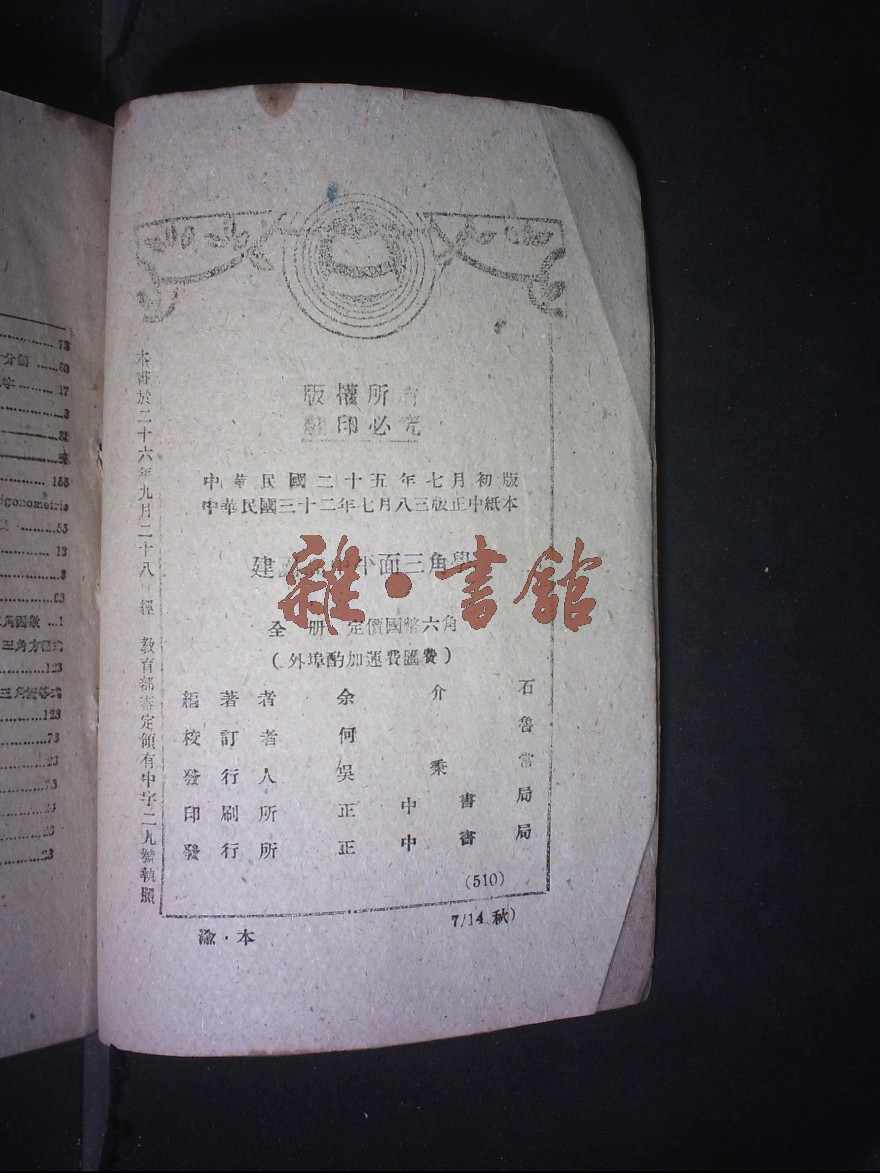 版權所有
翻印必究
中華民國二十五年七月初版
中華民國三十二年七月八三版正中紙本
建 平面三角學
雜·書館
全册 定價國幣六角
(外埠酌加運費匯費)
編著者 余介石
校訂者 何魯
發行人 吳秉常
印刷所 正中書局
發行所 正中書局
(510)
渝·本
7/14 秋)
本書於二十六年九月二十八日經 教育部審定領有中字二九號執照
73
分割 ......80
字 ......17
3
81
155
igonometric
55
13
8
63
三角函數 ...1
三角方程式
123
三角恆等式
123
73
23
75
24
23
23